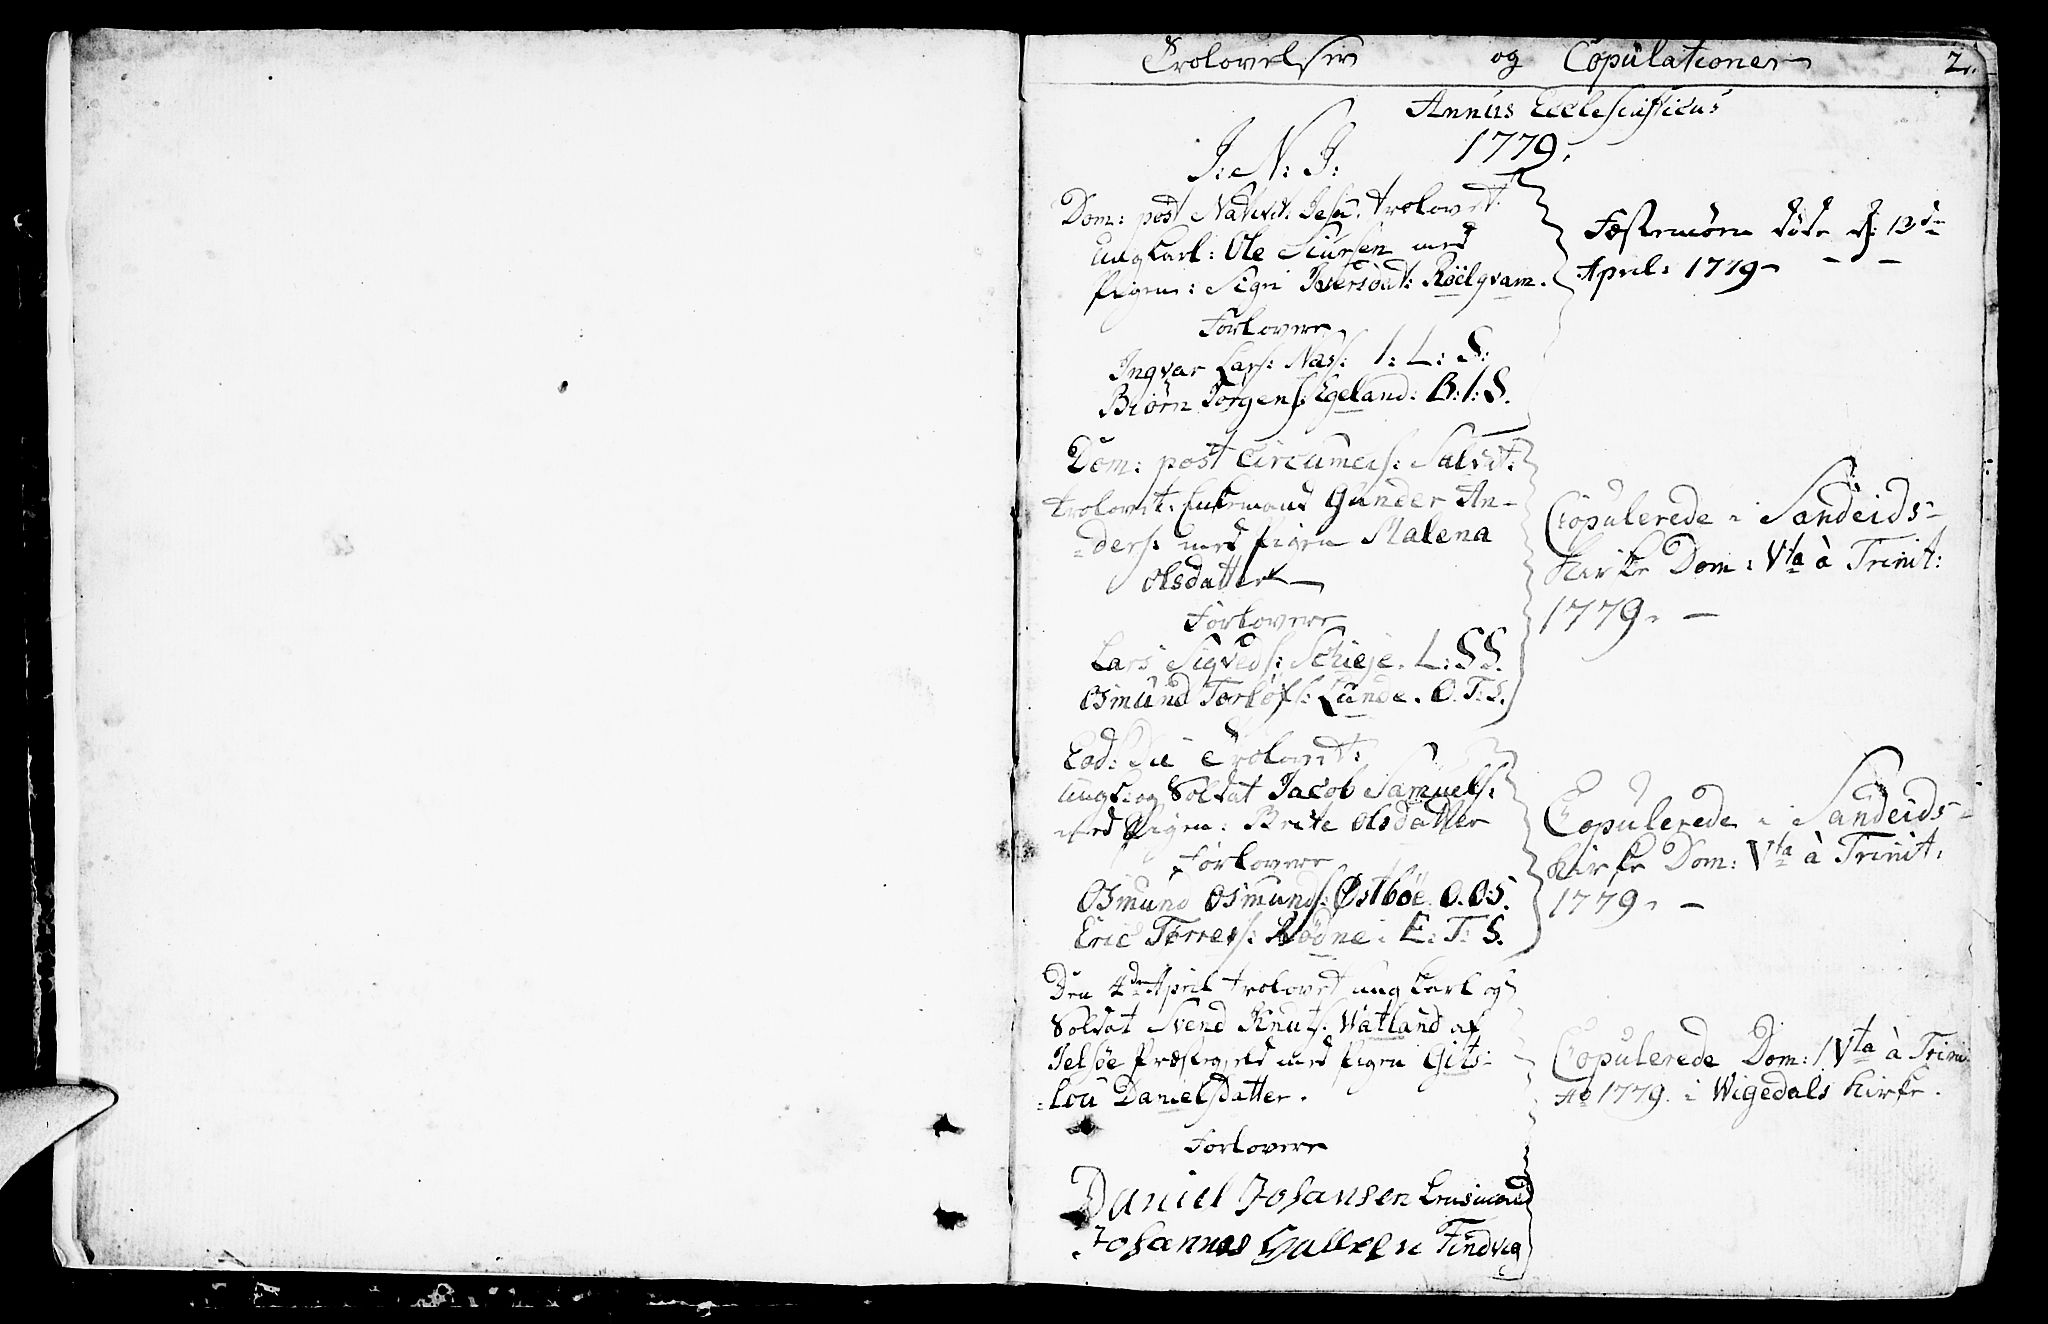 Trolovelser og Copulationer 2.
Annus Ecclesiasticus
1779.
J: N: J:
Dom: post Nativit: Jesu. trolovet
ungkarl: Ole Siursen med
pigen: Sigri Iversdat: Röelqvam.
Forlovere
Ingvar Lars: Nas: I: L: S:
Biörn Jörgens: Egeland: B: I: S.
Fæstemöen döde d: 13de
April: 1779
Dom: post Circumcis: Salvat:
trolovet: Enkemand Gunder An-
-ders: med pigen Malena
Olsdatter
Forlovere
Lars Sigveds: Schieje. L: S S.
Osmund Torlöfs: Lunde. O. T: S.
Copulerede i Sandeids-
Kirke Dom: Vta à Trinit:
1779.
Eod: Die trolovet:
ungk: og Soldat Jacob Samuels:
med Pigen: Brite Olsdatter
Forlovere
Osmund Osmunds: Østböe. O. O: S.
Eric Torres: Rödne: E: T: S.
Copulerede i Sandeids-
Kirke Dom: Vta à Trinit:
1779.
Den 4de April trolovet ungkarl og
Soldat Svend Knuts: Watland af
Jelsöe Præstegield med Pigen Gits-
-lou Danielsdatter.
Forlovere
Daniel Johansen
Johannes Halvels Tindvig
Copulerede Dom: IVta à Trini:
Ao 1779. i Wigedals Kirke.